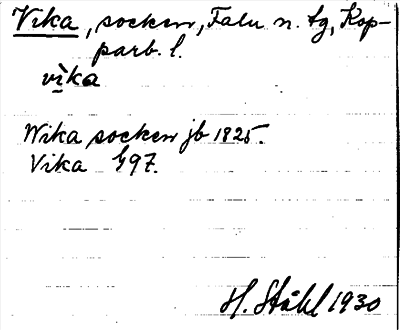 Vika, socken, Falu n. tg, Kop-
parb. l.
vìka
Wika socken jb 1825.
Vika G97.
H. Ståhl 1930